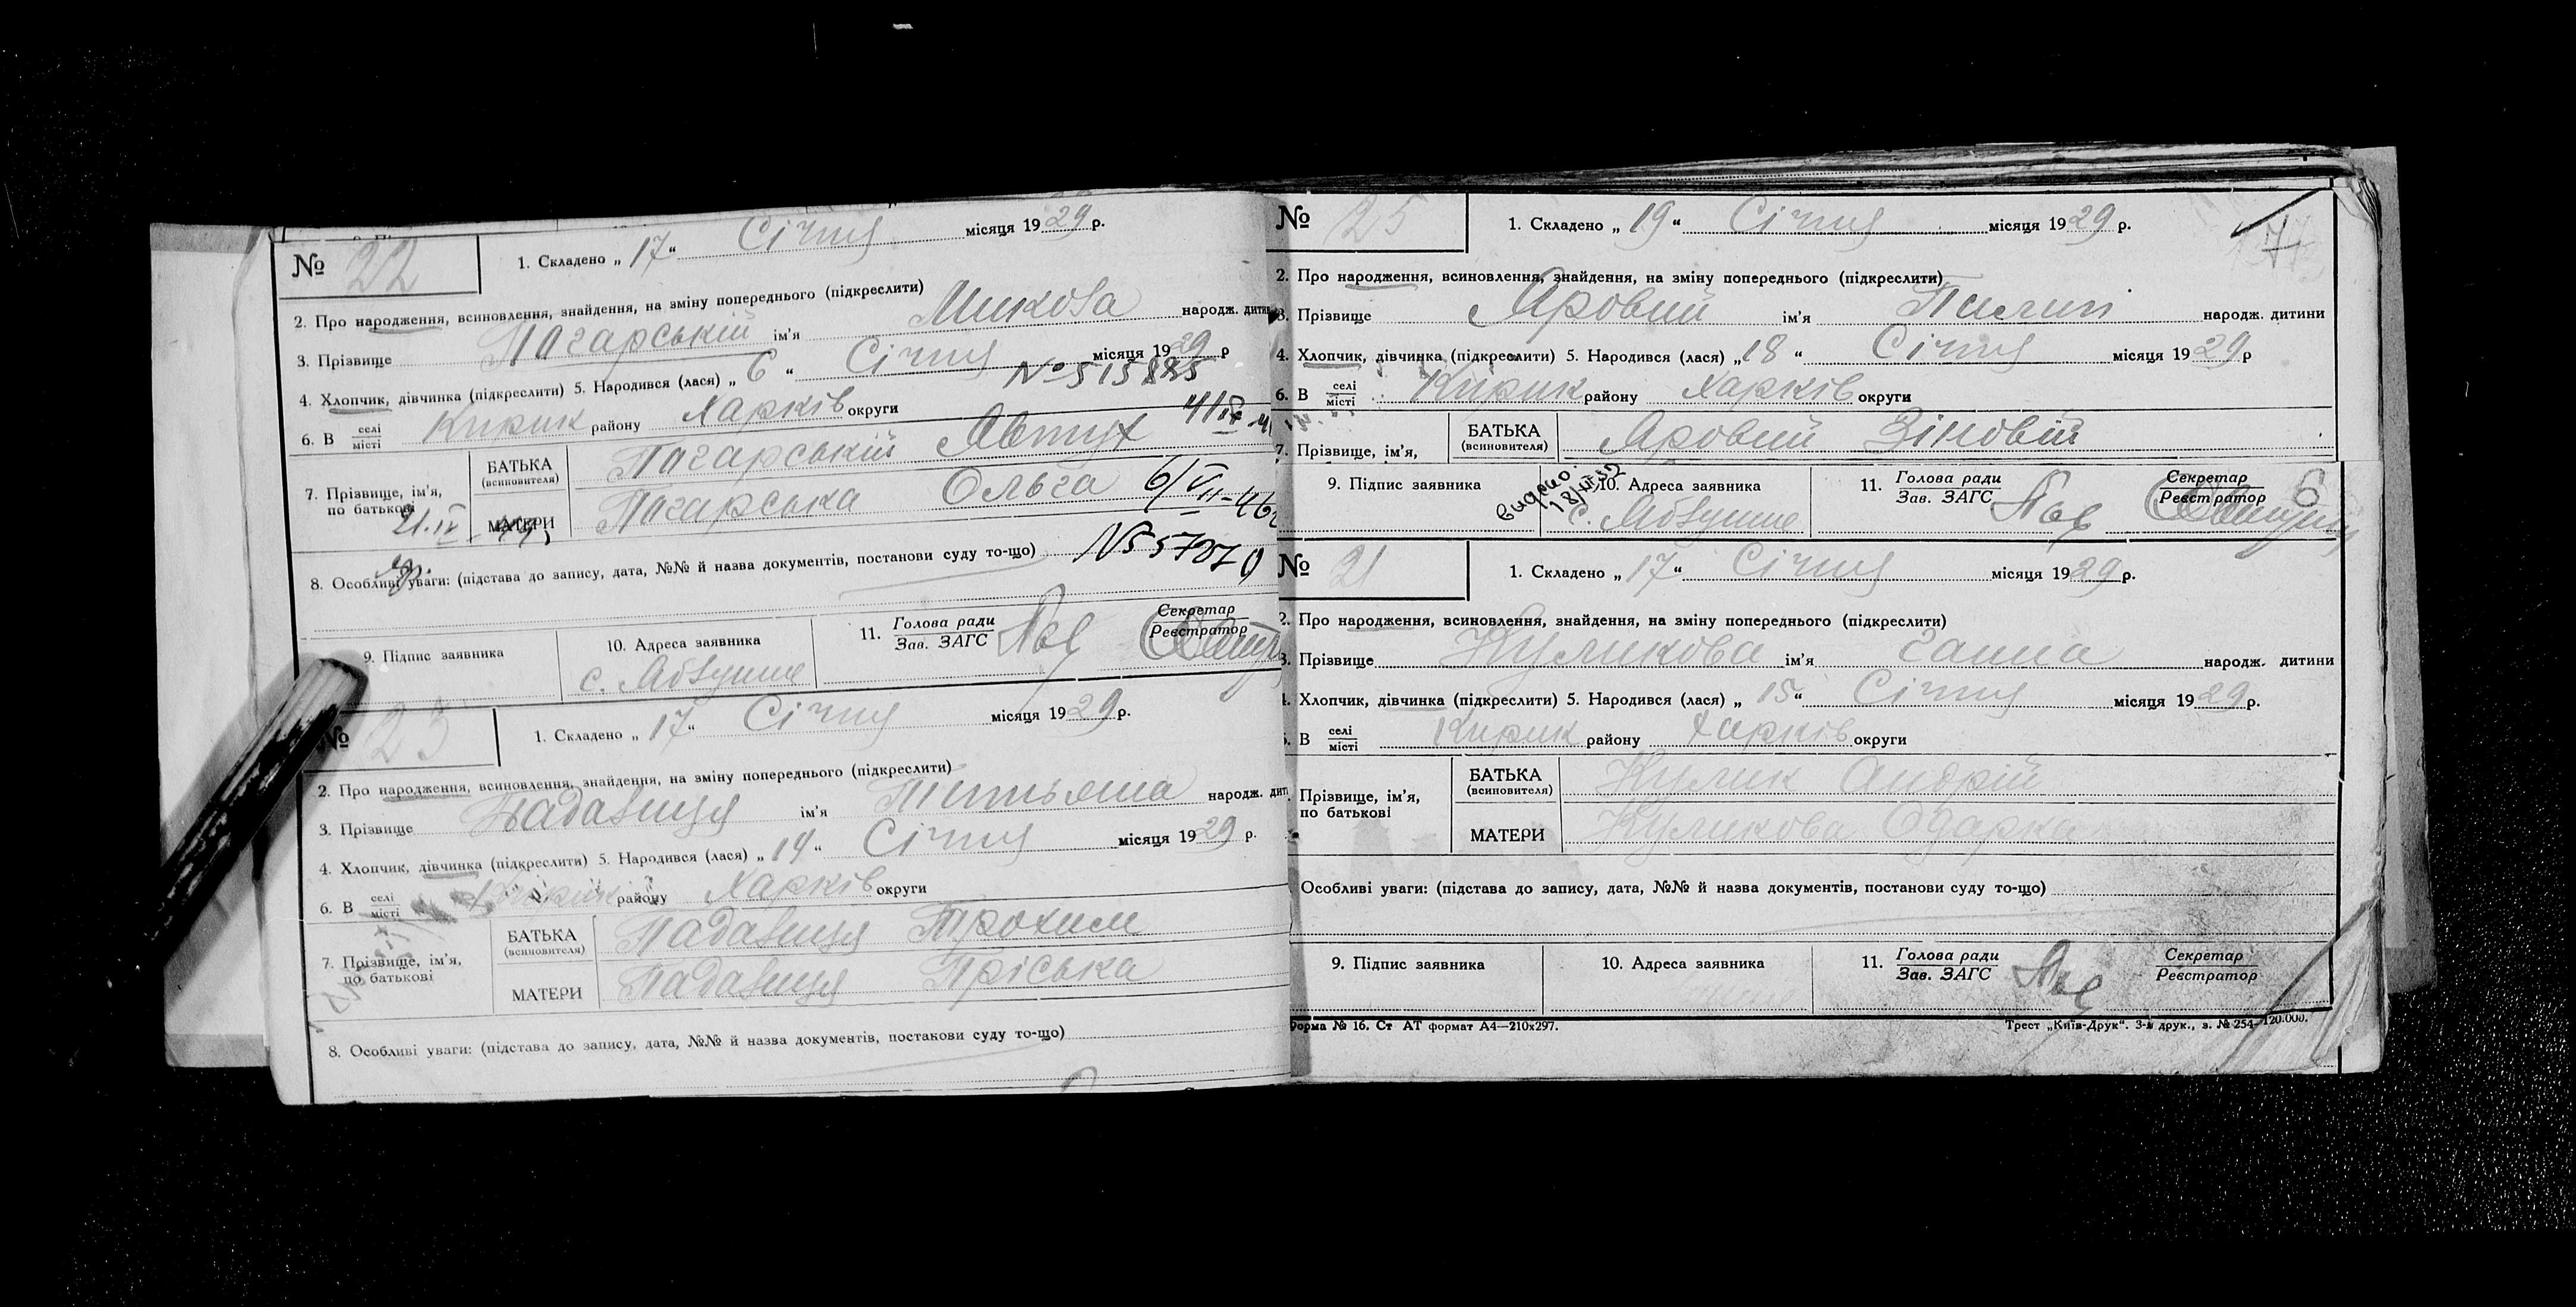 № 22
1. Складено „ 17 “ Січня місяця 1929 р.
2. Про народження, всиновлення, знайдення, на зміну попереднього (підкреслити)
3. Прізвище Погарській ім'я Микола народж. дити
4. Хлопчик, дівчинка (підкреслити) 5. Народився (лася) „ 6 “ Січня місяця 1929 р
№ 515885
6. В селі місті Кирик району Харків округи
7. Прізвище, ім'я, по батькові
БАТЬКА (всиновителя) Погарській Явтух
МАТЕРИ Погарська Ольга 6/VII-46
21.IV
8. Особливі уваги: (підстава до запису, дата, №№ й назва документів, постанови суду то-що)
9. Підпис заявника
10. Адреса заявника
с.
11. Голова ради Зав. ЗАГС
Секретар Реєстратор
№ 23
1. Складено „ 17 “ Січня місяця 1929 р.
2. Про народження, всиновлення, знайдення, на зміну попереднього (підкреслити)
3. Прізвище Падалиця ім'я Титьяна народж. дит
4. Хлопчик, дівчинка (підкреслити) 5. Народився (лася) „ 14 “ Січня місяця 1929 р.
6. В селі місті Кирик району Харків округи
7. Прізвище, ім'я, по батькові
БАТЬКА (всиновителя) Падалиця Трохим
МАТЕРИ Падалиця Пріська
8. Особливі уваги: (підстава до запису, дата, №№ й назва документів, постанови суду то-що)
№ 25
1. Складено „ 19 “ Січня місяця 1929 р.
2. Про народження, всиновлення, знайдення, на зміну попереднього (підкреслити)
3. Прізвище Яровий ім'я Пилип народж. дитини
4. Хлопчик, дівчинка (підкреслити) 5. Народився (лася) „ 18 “ Січня місяця 1929 р
6. В селі місті Кирик району Харків округи
7. Прізвище, ім'я,
БАТЬКА (всиновителя) Яровий Зіновій
9. Підпис заявника
видано
10. Адреса заявника
с.
11. Голова ради Зав. ЗАГС
Секретар Реєстратор
6
№ 21
1. Складено „ 17 “ Січня місяця 1929 р.
2. Про народження, всиновлення, знайдення, на зміну попереднього (підкреслити)
3. Прізвище Куликова ім'я Ганна народж. дитини
4. Хлопчик, дівчинка (підкреслити) 5. Народився (лася) „ 15 “ Січня місяця 1929 р.
В селі місті Кирик району Харків округи
Прізвище, ім'я, по батькові
БАТЬКА (всиновителя) Кулик Андрій
МАТЕРИ Куликова Одарка
Особливі уваги: (підстава до запису, дата, №№ й назва документів, постанови суду то-що)
9. Підпис заявника
10. Адреса заявника
11. Голова ради Зав. ЗАГС
Секретар Реєстратор
Форма № 16. Ст АТ формат А4—210х297.
Трест „Київ-Друк“. 3-я друк., з. № 254—120.000.